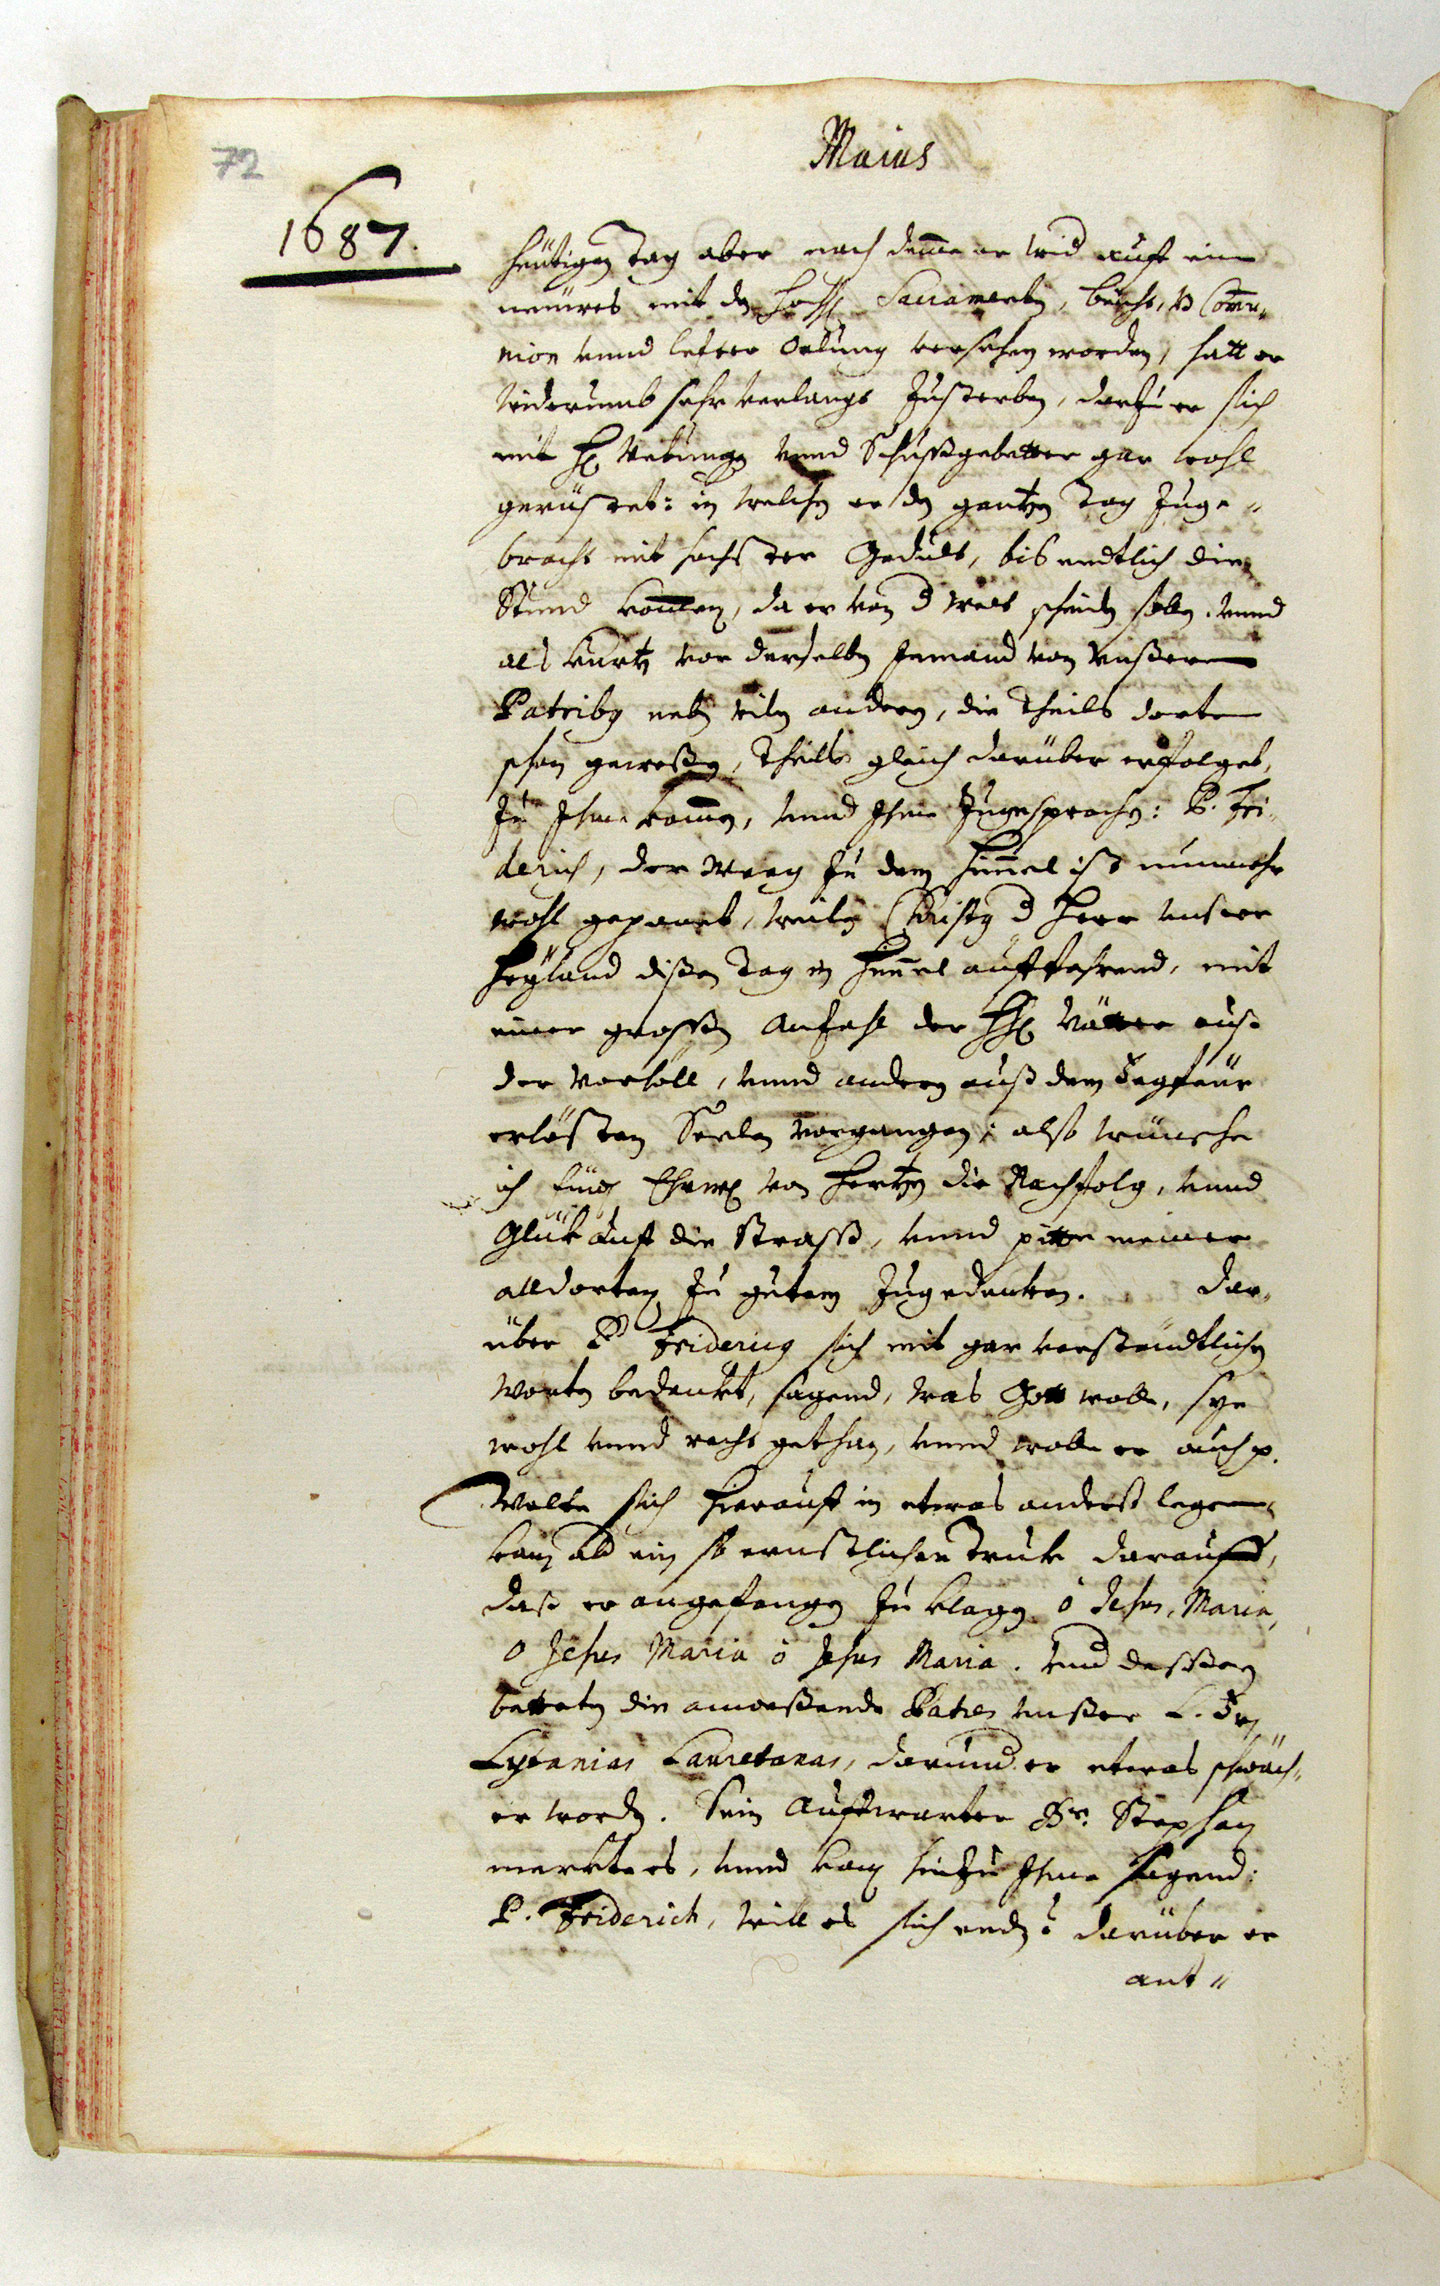 72
Maius
1687.
heütigen Tag aber nach deme er wid auff ein
neüwes mit dē hochh. Sacramentē, beicht, vnd Com̄u-
nion vnnd letster Oelung versehen worden, hatt er
widerumb sehr verlangt zusterben, darzu er sich
mit H. Vebungē vnnd Schussgebetter gar wohl
gerüstet: in welchē er dē gantzen Tag zuge-
bracht mit höchster Gedult, bis endtlich die
Stund kommen, da er von d welt scheidē solle. vnnd
als kurtz vor derselbē Jemand von vnßeren
Patribus nebē vilē andern, die Theils dorten
schon geweßen, Theils gleich darüber erfolget,
zu Ihme kommē, vnnd Ihme zugesprochē: P. Fri-
derich, der weeg zu dem Himmel ist nunmehr
wohl gepanet, weilē Christus d Herr vnser
Heÿland dißen Tag in Himmel auffahrend, mit
einer großen Anzahl der HH. Vätter aus
der Vorhöll, vnnd andern auß dem Fegfeür
erlösten Seelen vorgangen; also wünsche
ich Eüwer Ehrw. von Hertzē die Nachfolg, vnnd
Glük auff die Straß, vnnd pitte meiner
alldorten zu gutem zugedenken. Dar-
über P Fridericus sich mit gar verständtlichē
Wortē bedankt, sagend, was Gott wolle, sye
wohl vnnd recht gethan, vnnd wolle er auch p.
Wolte sich hierauff in etwas anderst legen,
kam ab ein so ernstlicher Truk darauff,
dass er angefangen zu klagē ô Jesus, Maria,
O Jesus Maria ô Jesus Maria. Vnd dessen
bettetē die anweßende Patres vnßer L. Frē
Lytanias Lauretanas, darund er etwas schwäch-
er wordē. Sein Auffwarter Br. Stephan
merkte es, vnnd kam hinzu Ihme sagend:
P. Friderich, will es sich endē? darüber er
ant-